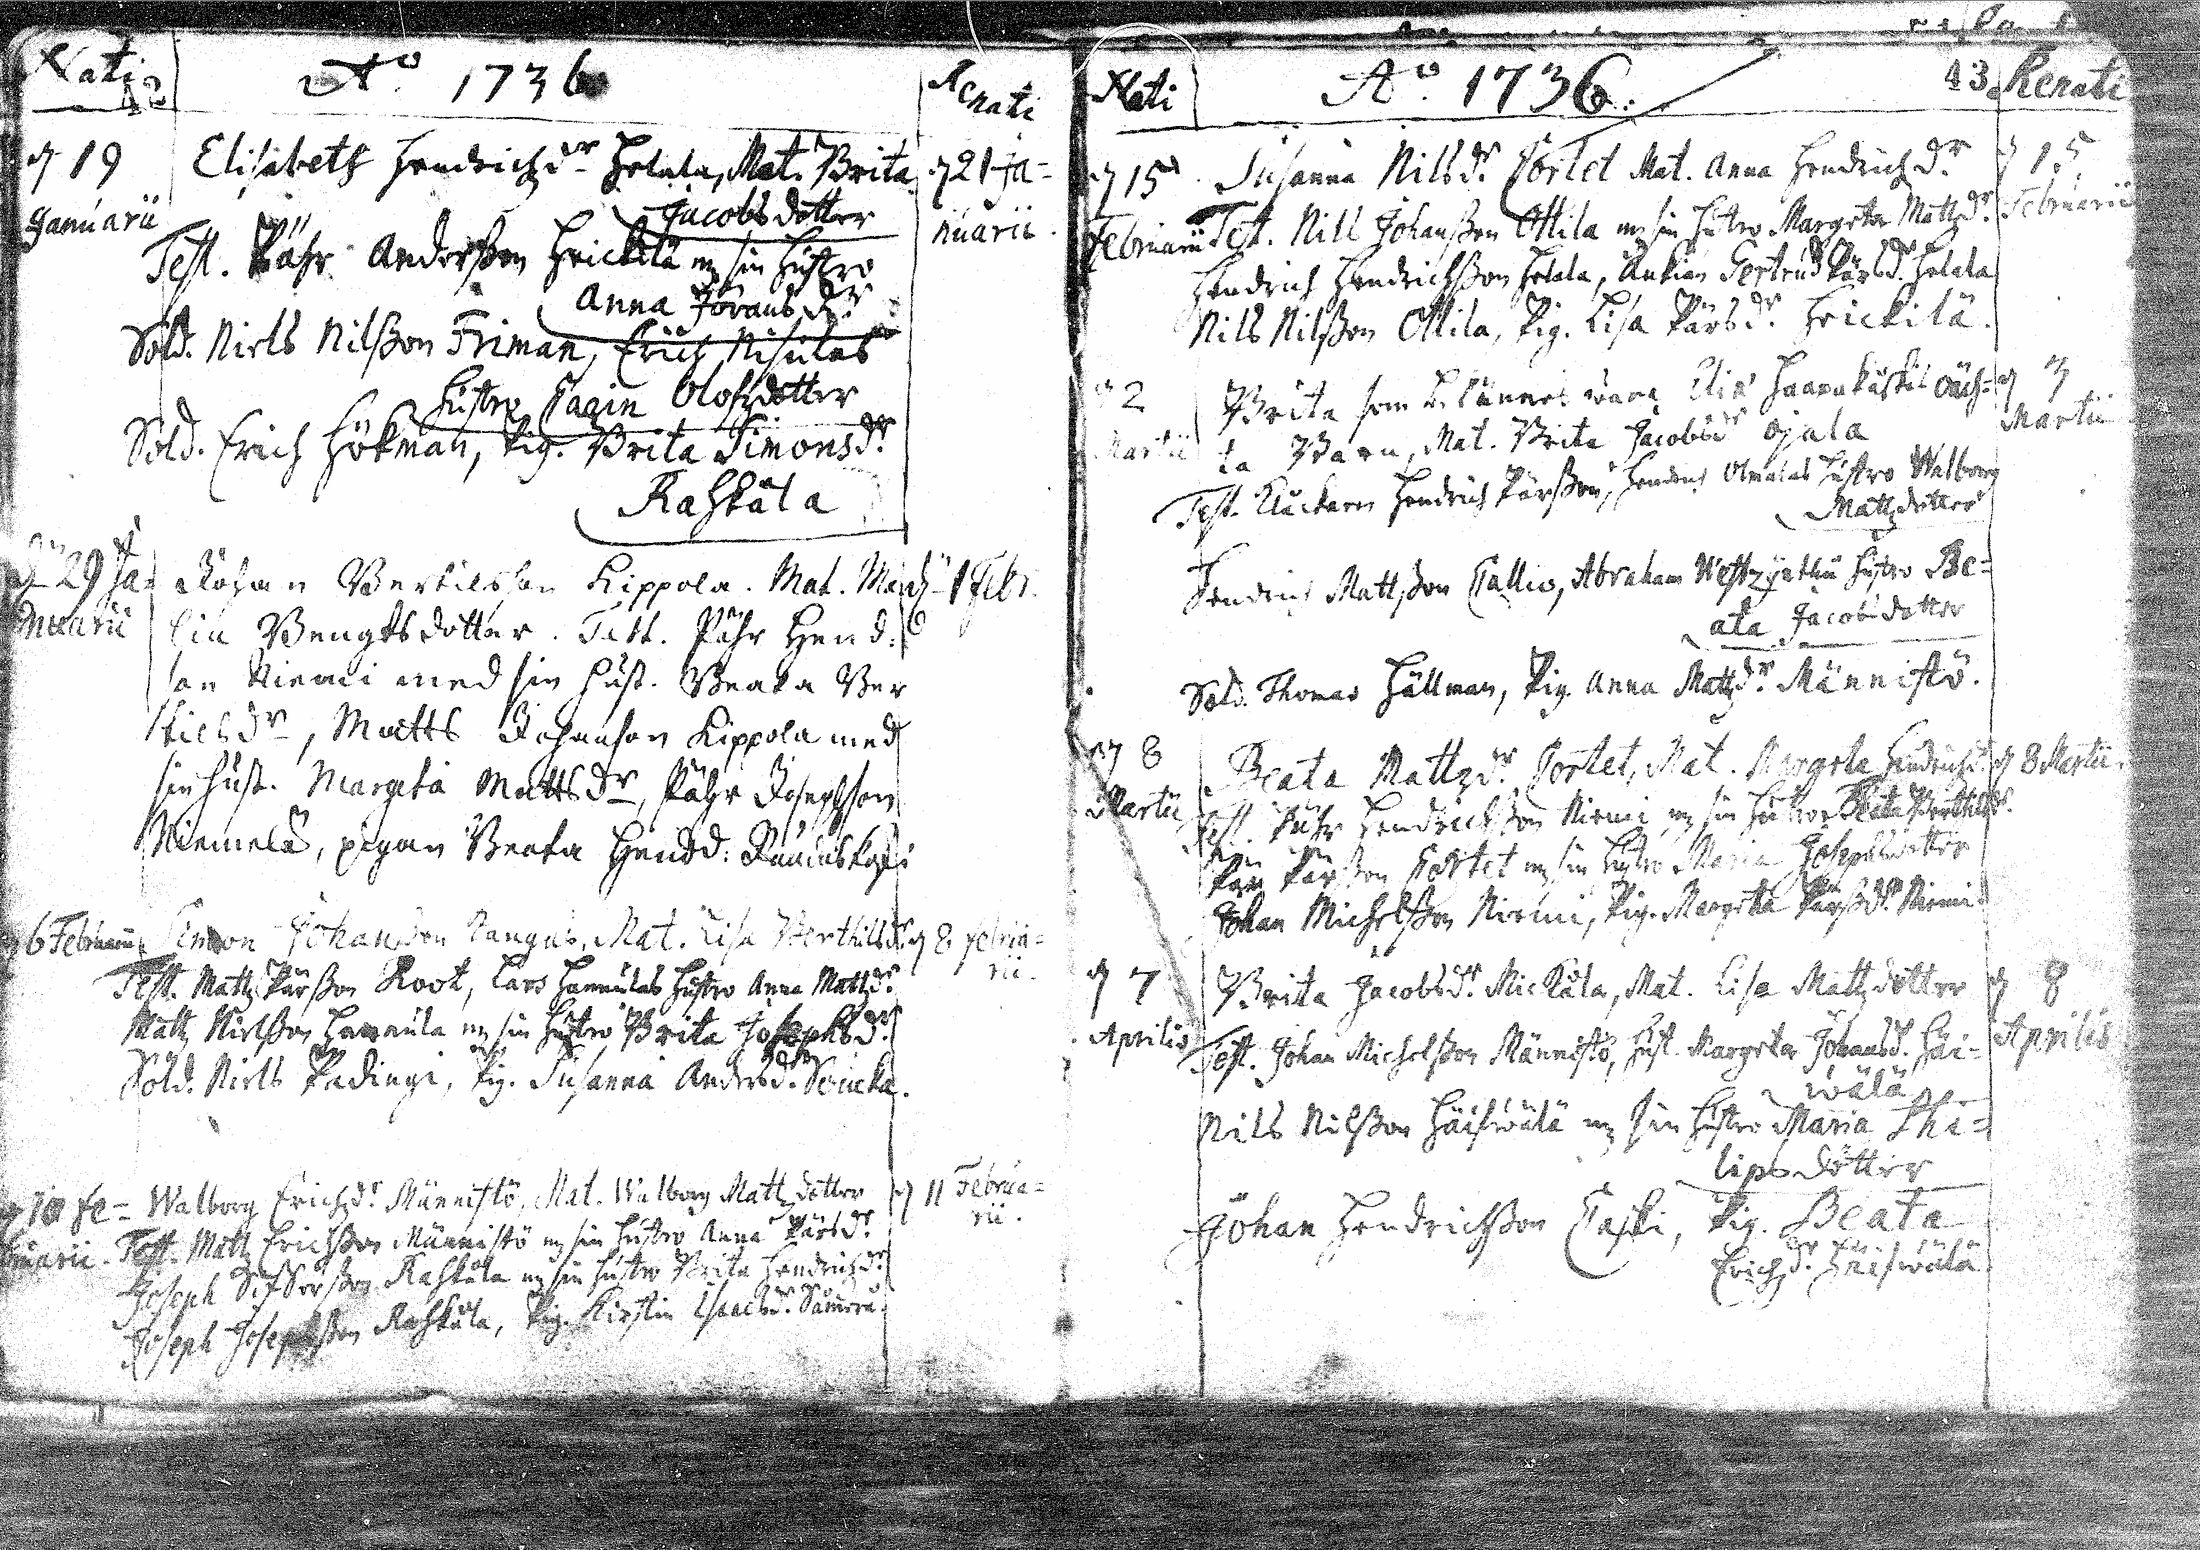 Nati
42
Ao. 1736
Renati
d 19 Januarii
Elisabeth Hendrichzdr Helala, Mat. Brita
Jacobsdotter
d 21 Ja=
nuarii.
Test. Påhr Anderßon Heickilä m sin hustro
Anna Jöransdr.
Sold. Niels Nilßon Friman, Erich Nisulas
hustro Carin Olofzdotter
Sold. Erich Hökman, Pig. Brita Simonsdr.
Rahkåla
d 29 Ja=
nuarii
Johan Bertilsson Kippola. Mat. Ma
lin Bengtsdotter. Test. Påhr Hend:
son Niemi med sin hust. Beata Ber
tilsdr, Matts Johanson Kippola med
sin hust. Margeta Mattsdr, Påhr Josephson
Niemelä, pigan Beata Hendd: Raudaskoski
d 1 Febr.
d 6 Februarii
Simon Johanßon Tangus, Mat. Lisa Berthilsdr.
d 8 Februa=
rii.
Test. Mattz Pärßon Root, Lars Hannulas hustro Anna Mattzdr.
Mattz Nielßon Hannula m sin hustro Brita Josephsdr.
Sold. Niels Padingi, Pig. Susanna Andersdr.
d 10 Fe=
bruarii.
Walborg Erichzdr. Männistö, Mat. Walborg Mattzdotter
d 11 Februa=
rii.
Test. Mattz Erichßon Männistö m sin hustro Anna Pärsdr.
Joseph Rahkåla m sin hustro Brita Hendrichzdr.
Joseph Josephßon Rahkåla, Pig. Kirstin Isaachsdr.
Nati
Ao. 1736.
43. Renati
d 15
Februarii
Susanna Nilsdr. Cortet Mat. Anna Hendrichdr.
d 15.
Februarii
Test. Nils Johanßon Ollila m sin hustro Margreta Mattzdr.
Hendrich Hendrichßon Helala, Änkian Gertrud Pärsdr. Helala
Nils Nilßon Ollila, Pig. Lisa Pärsdr. Heickilä.
d 2
Martii
Brita som bekännes wara Elia oäch=
ta Barn, Mat. Brita Jacobsdr Ojala
d 3
Martii
Test. Klåckaren Hendrich Pärßon, Hendrich Olmalas hustro Walborg
Mattzdotter
Hendrich Mattßon Callio, Abraham hustro Be=
ata Jacobsdotter
Sold. Thomas Hällman, Pig. Anna Mattzdr. Männistö.
d 8
Martii
Beata Mattzdr. Cortet, Mat. Margreta Hendrichzdr.
d 8 Martii.
Test. Påhr Hendrichßon Niemi m sin hustro Beata Berthilsdr.
Pärßon Cortet m sin hustro Maria Josephsdotter
Johan Michelßon Niemi, Pig. Margreta Pärßdr. Niemi
d 7
Aprilis
Brita Jacobsdr. Mickåla, Mat. Lisa Mattzdotter
d 8
Aprilis
Test. Johan Michelßon Männistö, hust. Margreta Johansdr. Häi=
wälä
Nils Nilßon Häiswälä m sin hustro Maria Phi=
lipsdotter
Johan Hendrichßon Caski, Pig. Beata
Erichzdr. Häiswälä